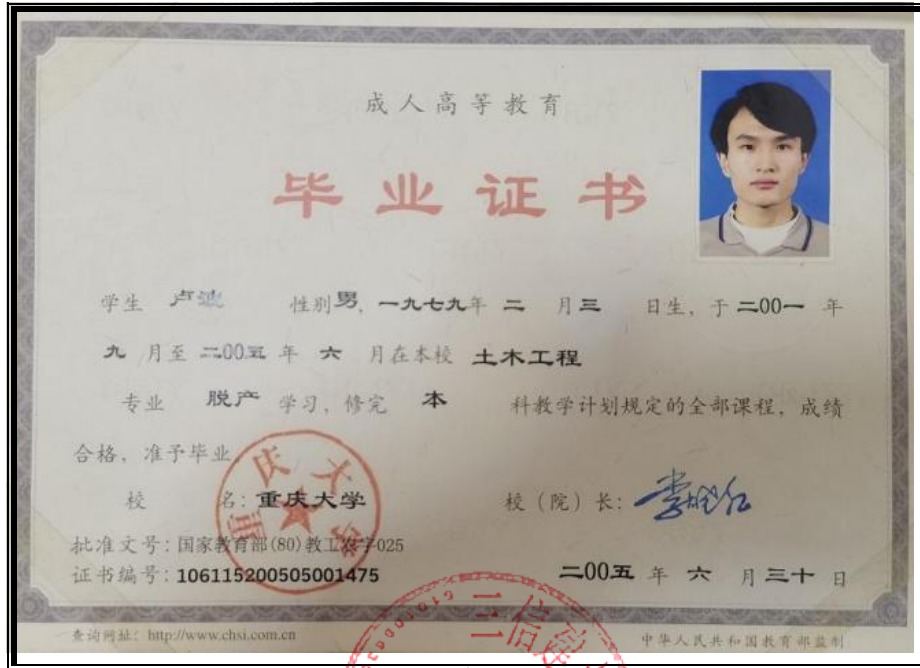 成人高等教育
毕业证书
学生 卢波 性别男，一九七九年 二 月三 日生，于二00一 年
九 月至 二00五 年 六 月在本校 土木工程
专业 脱产 学习，修完 本 科教学计划规定的全部课程，成绩
合格，准予毕业。
校 名：重庆大学 校（院）长：
重庆大学
批准文号：国家教育部(80)教工农字025
证书编号：106115200505001475 二00五 年 六 月三十 日
三信建
查询网址：http://www.chsi.com.cn 中华人民共和国教育部监制